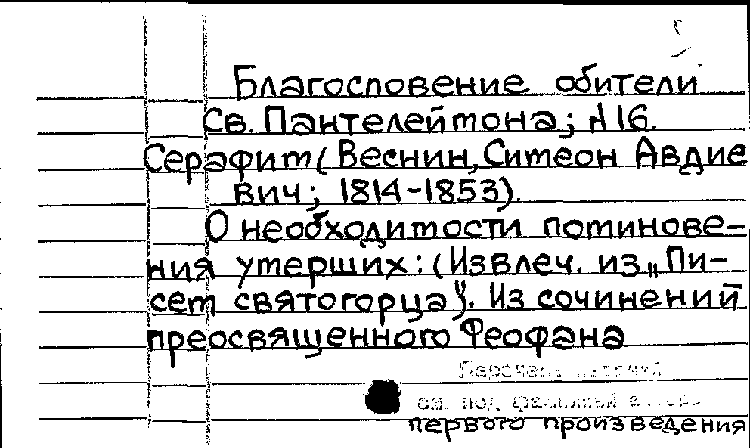 Благословение обители
Св. Пантелеймона; №16.
Серафим (Веснин, Симеон Авдие
вич; 1814-1853).
О необходимости поминове-
ния умерших: (Извлеч. из „Пи-
сем святогорца"). Из сочинений
преосвященного Феофана
см. под фамилией автора
первого произведения